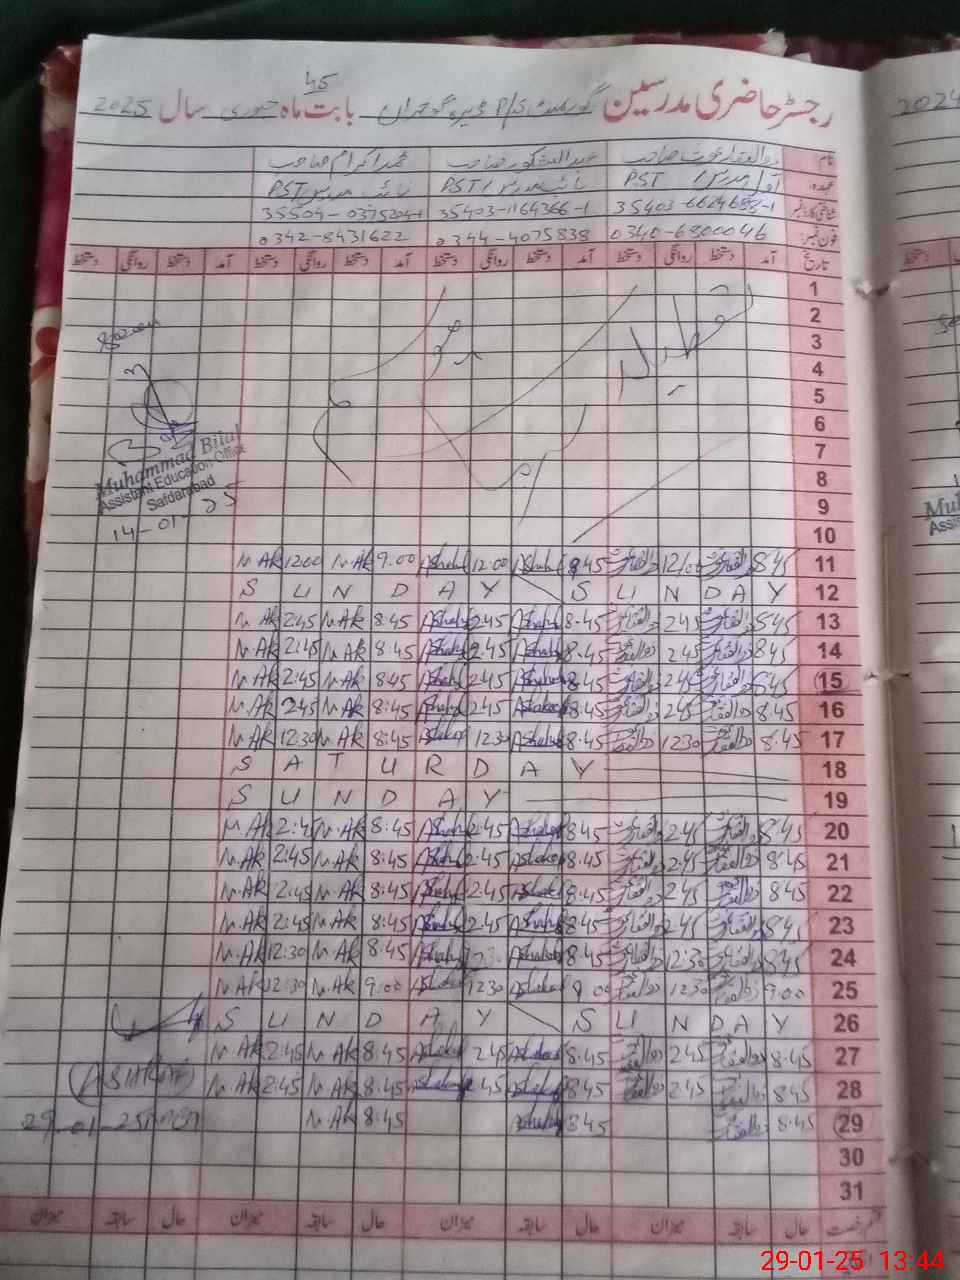 45
رجسٹر حاضری مدرسین گورنمنٹ P/S ڈیرہ گوجراں بابت ماہ جنوری سال 2025
2024
نام ذوالفقار غوث صاحب عبدالشکور صاحب محمد اکرام صاحب
عہدہ اول مدرس / PST نائب مدرس / PST نائب مدرس / PST
شناختی کارڈ نمبر 35403-1164366-1
فون نمبر: 0340-6800046 0344-4075838 0342-8431622
تاریخ آمد دستخط روانگی دستخط آمد دستخط روانگی دستخط آمد دستخط روانگی دستخط دستخط روانگی دستخط
1
2
3
4
5
6
7
8
9
10
تعطیلات
موسم
Muhammad Bilal
Assistant Education Officer
Safdarabad
14-01-25
M.Ak 12:00 M.Ak 9:00 AShakoor 12:00 AShakoor 8:45 ذوالفقار 12/00 ذوالفقار 8:45 11
S U N D A Y S U N D A Y 12
M.Ak 2:45 M.Ak 8:45 AShakoor 2:45 AShakoor 8:45 ذوالفقار 2:45 ذوالفقار 8:45 13
M.Ak 2:45 M.Ak 8:45 AShakoor 2:45 AShakoor 8:45 ذوالفقار 2:45 ذوالفقار 8:45 14
M.Ak 2:45 M.Ak 8:45 AShakoor 2:45 AShakoor 8:45 ذوالفقار 2:45 ذوالفقار 8:45 15
M.Ak 2:45 M.Ak 8:45 AShakoor 2:45 AShakoor 8:45 ذوالفقار 2:45 ذوالفقار 8:45 16
M.Ak 12:30 M.Ak 8:45 AShakoor 12:30 AShakoor 8:45 ذوالفقار 12:30 ذوالفقار 8:45 17
S A T U R D A Y 18
S U N D A Y 19
M.Ak 2:45 M.Ak 8:45 AShakoor 2:45 AShakoor 8:45 ذوالفقار 2:45 ذوالفقار 8:45 20
M.Ak 2:45 M.Ak 8:45 AShakoor 2:45 AShakoor 8:45 ذوالفقار 2:45 ذوالفقار 8:45 21
M.Ak 2:45 M.Ak 8:45 AShakoor 2:45 AShakoor 8:45 ذوالفقار 2:45 ذوالفقار 8:45 22
M.Ak 2:45 M.Ak 8:45 AShakoor 2:45 AShakoor 8:45 ذوالفقار 2:45 ذوالفقار 8:45 23
M.Ak 12:30 M.Ak 8:45 AShakoor AShakoor 8:45 ذوالفقار 12:30 ذوالفقار 8:45 24
M.Ak 12:30 M.Ak 9:00 AShakoor 12:30 AShakoor ذوالفقار 12:30 ذوالفقار 9:00 25
S U N D A Y S U N D A Y 26
M.Ak 2:45 M.Ak 8:45 AShakoor 2:45 AShakoor 8:45 ذوالفقار 2:45 ذوالفقار 8:45 27
M.Ak 2:45 M.Ak 8:45 AShakoor 2:45 AShakoor 8:45 ذوالفقار 2:45 ذوالفقار 8:45 28
29-01-25 M.Ak 8:45 AShakoor 8:45 ذوالفقار 8:45 29
30
31
قسم رخصت حال سابقہ میزان حال سابقہ میزان حال سابقہ میزان حال سابقہ میزان
29-01-25 13:44